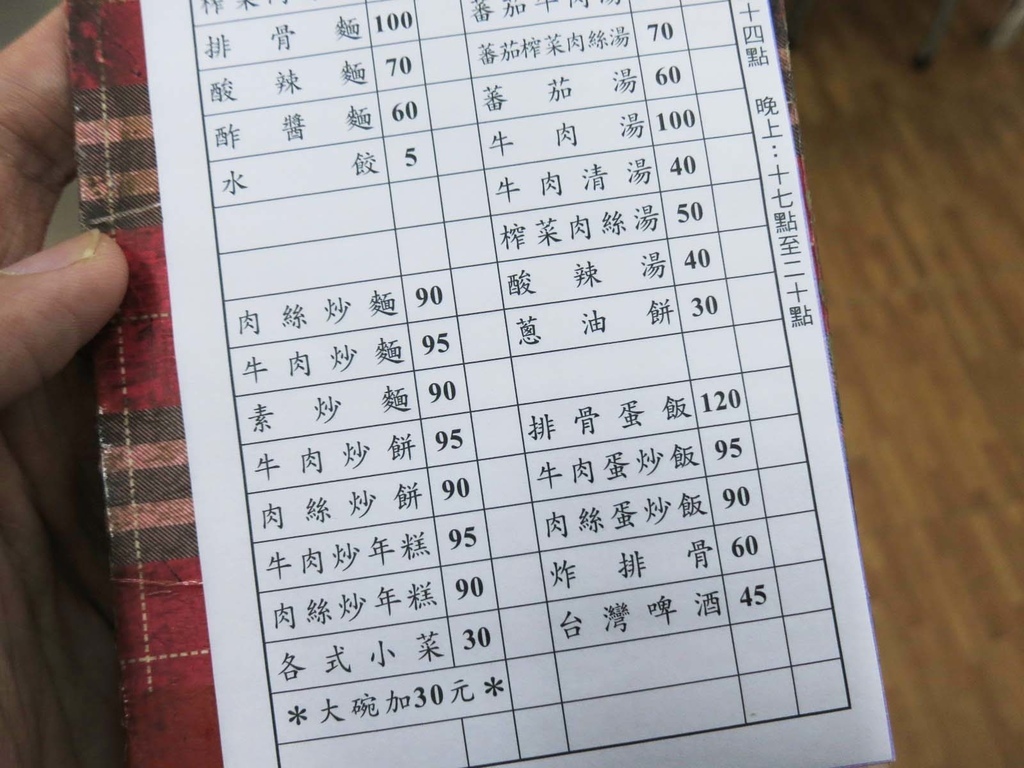 排骨麵 100
酸辣麵 70
酢醬麵 60
水餃 5
肉絲炒麵 90
牛肉炒麵 95
素炒麵 90
牛肉炒餅 95
肉絲炒餅 90
牛肉炒年糕 95
肉絲炒年糕 90
各式小菜 30
＊大碗加30元＊
蕃茄牛肉湯
蕃茄榨菜肉絲湯 70
蕃茄湯 60
牛肉湯 100
牛肉清湯 40
榨菜肉絲湯 50
酸辣湯 40
蔥油餅 30
排骨蛋飯 120
牛肉蛋炒飯 95
肉絲蛋炒飯 90
炸排骨 60
台灣啤酒 45
十四點　晚上：十七點至二十點